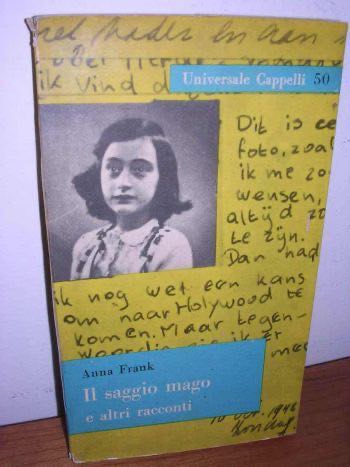 Universale Cappelli 50
ik vind d
Dit is ee
foto, zoal
ik me zo
wensen,
altijd zo
te zijn.
Dan had
ik nog wel een kans
om naar Holywood te
komen. Maar tegen-
ik er
Anna Frank
Il saggio mago
e altri racconti
10 Oct. 1942